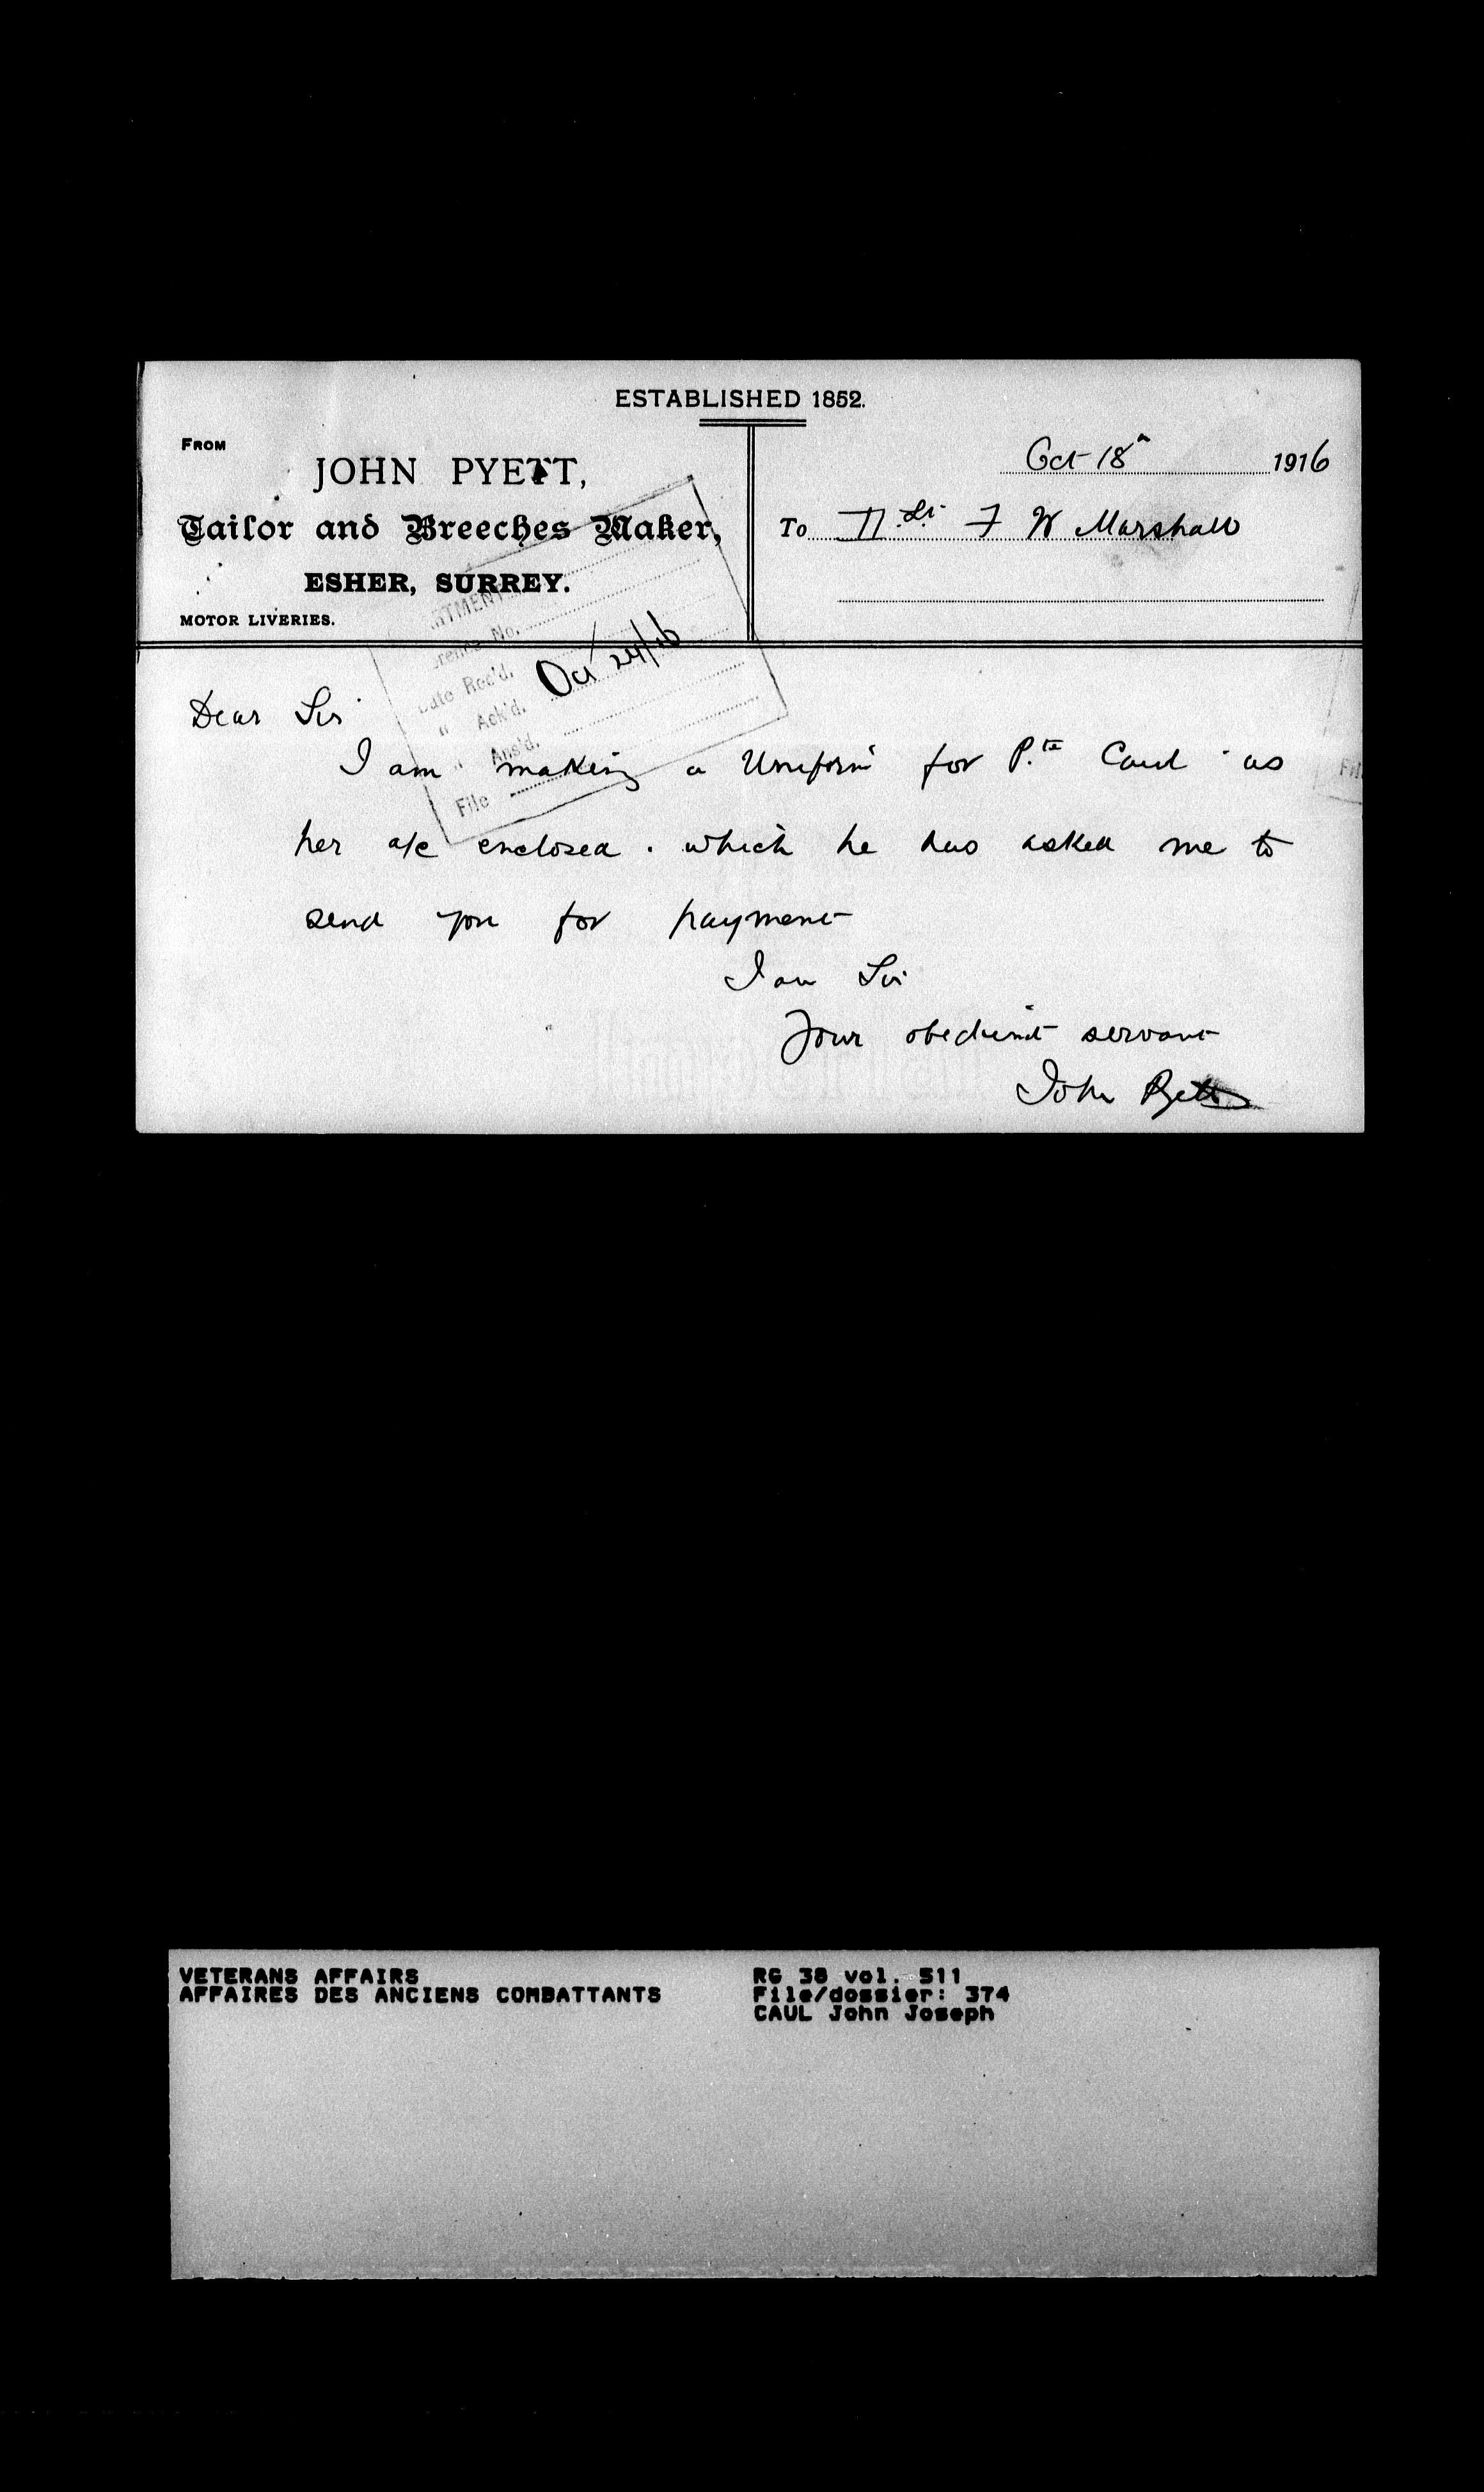 ESTABLISHED 1852.
FROM
JOHN PYETT,
Tailor and Breeches Maker,
ESHER, SURREY.
MOTOR LIVERIES.
Oct 18th 1916
To F W Marshall
No.
Date Rec'd. Oct 24/16
" Ack'd.
" Ans'd.
File
Dear Sir
I am making a Uniform for P.te Caul as
her a/c enclosed . which he has asked me to
send you for payment
I am Sir
Your obedient servant
John Pyett
VETERANS AFFAIRS
AFFAIRES DES ANCIENS COMBATTANTS
RG 38 vol. 511
File/dossier: 374
CAUL John Joseph